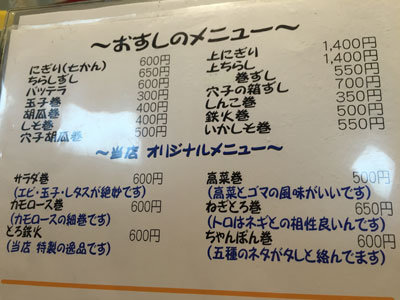 ～おすしのメニュー～
にぎり(七かん) 600円
ちらしずし 650円
バッテラ 600円
玉子巻 300円
胡瓜巻 400円
しそ巻 400円
穴子胡瓜巻 500円
上にぎり 1,400円
上ちらし 1,400円
巻ずし 550円
穴子の箱ずし 700円
しんこ巻 350円
鉄火巻 500円
いかしそ巻 550円
～当店 オリジナルメニュー～
サラダ巻 600円
(エビ・玉子・レタスが絶妙です)
カモロース巻 600円
(カモロースの細巻です)
とろ鉄火 600円
(当店 特製の逸品です)
高菜巻 500円
(高菜とゴマの風味がいいです)
ねぎとろ巻 650円
(トロはネギとの相性良いんです)
ちゃんぽん巻 600円
(五種のネタがタレと絡んでます)